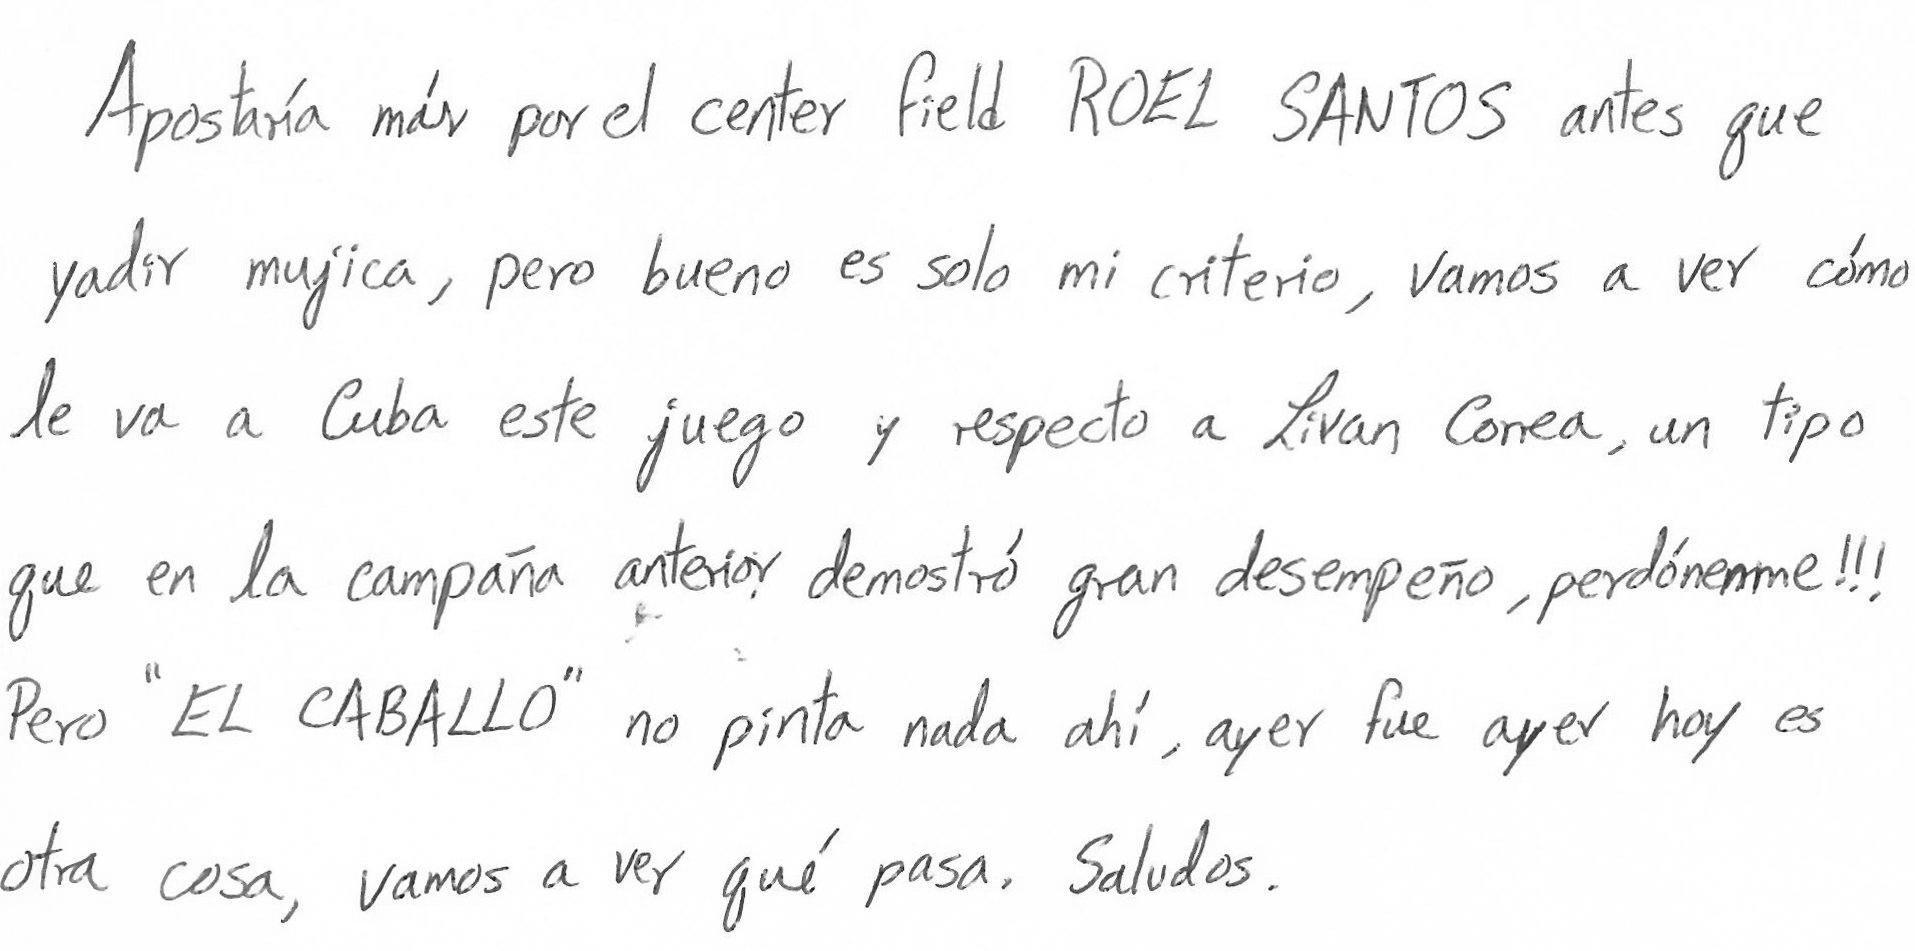 Apostaría más por el center field ROEL SANTOS antes que
yadir mujica, pero bueno es solo mi criterio, vamos a ver cómo
le va a Cuba este juego y respecto a Livan Correa, un tipo
que en la campaña anterior demostró gran desempeño, perdónenme!!!
Pero "EL CABALLO" no pinta nada ahí, ayer fue ayer hoy es
otra cosa, vamos a ver qué pasa. Saludos.